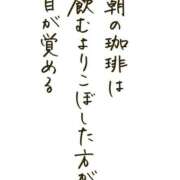 朝の珈琲は
飲むよりこぼした方が
目が覚める